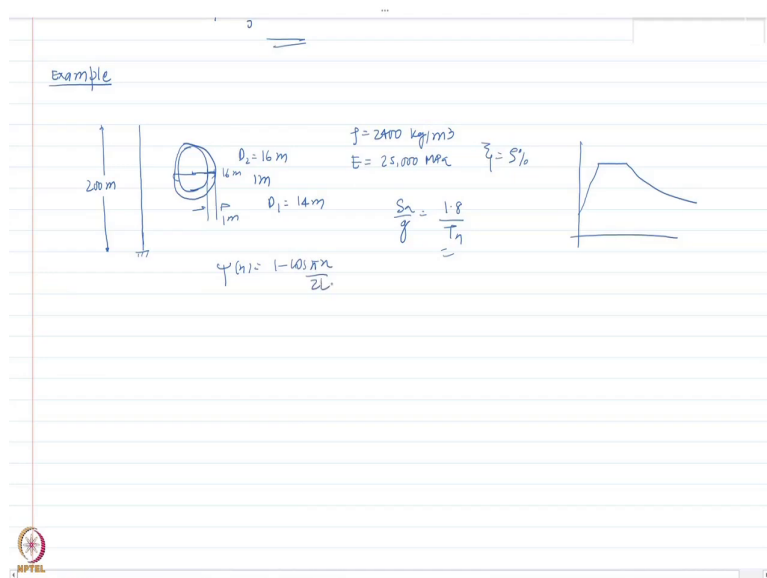 Example
200m
D₂ = 16m
16m
1m
D₁ = 14m
1m
ρ = 2400 kg/m3
E = 25,000 MPa
ξ = 5%
Sa/g = 1.8/Tn
ψ(x) = 1 - cos πx/2L
NPTEL